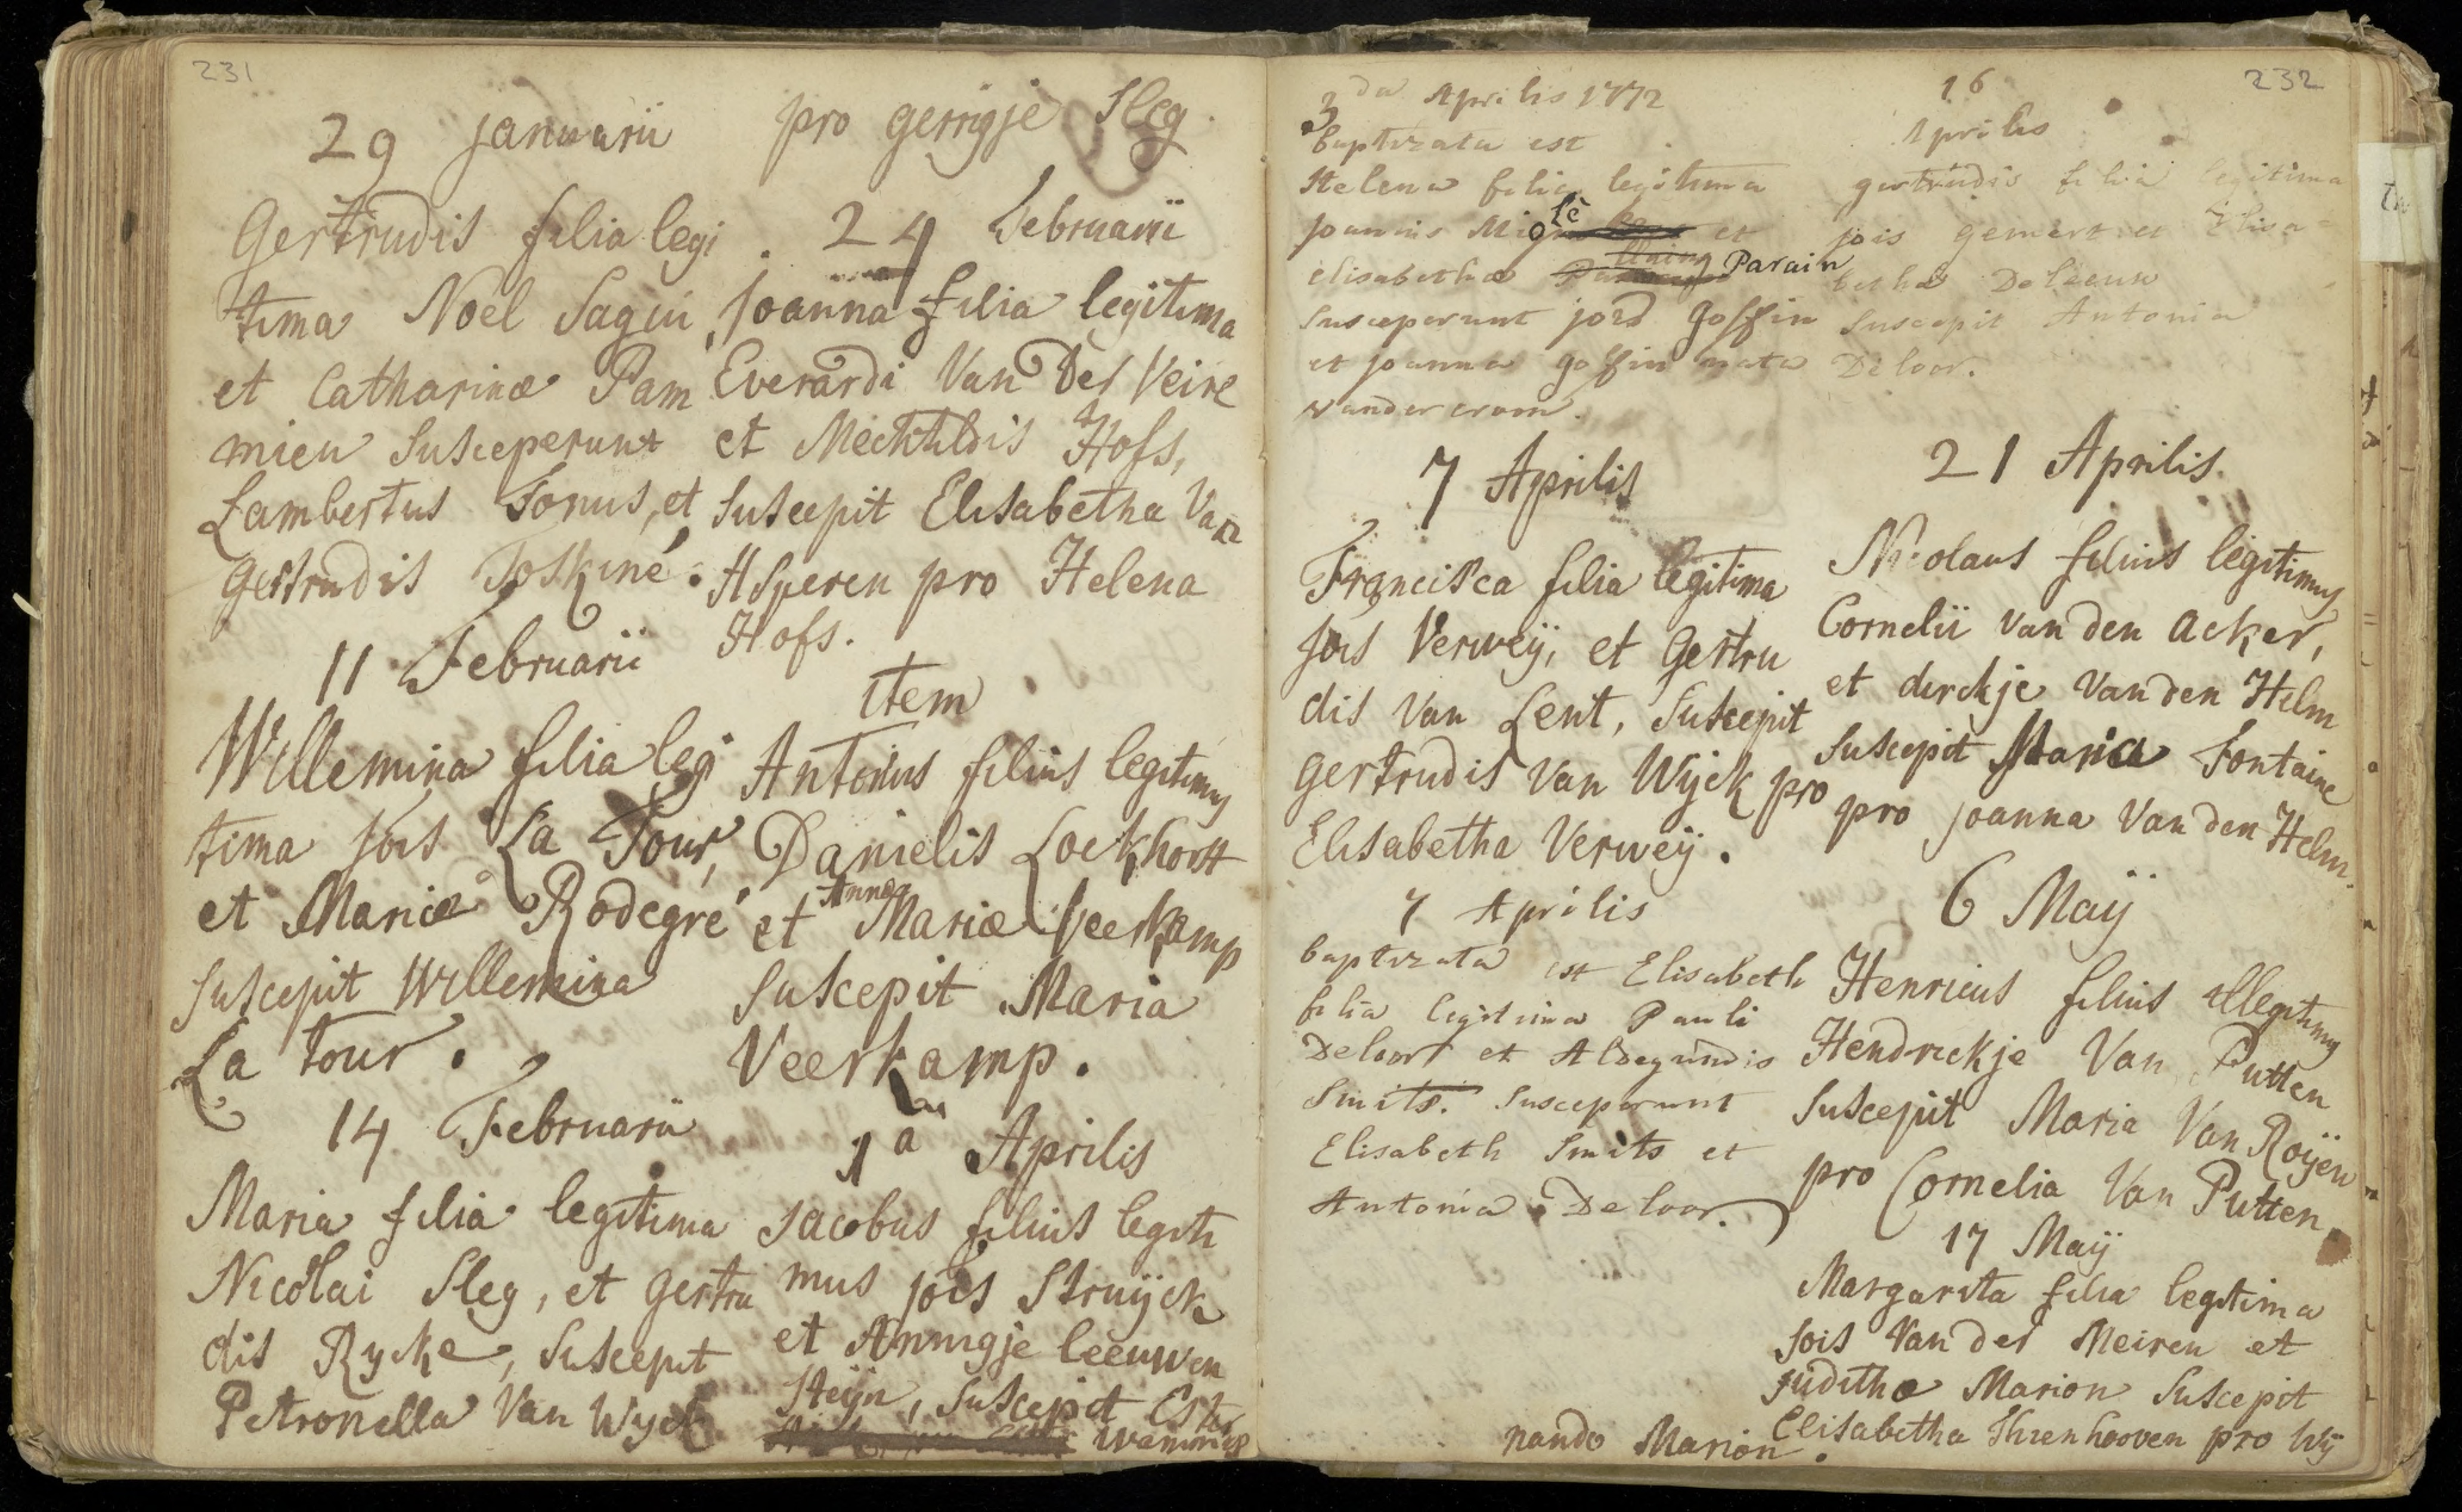 231
29 Januarii
Gertrudis filia legi
tima Noël Sagui
et Catharinæ Pam
mieu Susceperunt
Lambertus Fonus, et
Gertrudis Toskiné.
11 Februarii
Willemina filia leg
tima Jois La Tour,
et Mariæ Rodegré
Suscepit Willemina
La tour.
14 Februarii
Maria filia legitima
Nicolai Sleg, et Gertru
dis Rycke, Suscepit
Petronella Van Wyck
pro gerrigje Sleg.
24 Februarii
Joanna filia legitima
Everardi Van Der Veire
et Mechtildis Hofs,
Suscepit Elisabetha Van
Asperen pro Helena
Hofs.
item
Antonius filius legitimus
Danielis Lockhorst
et Anna Mariæ Veerkamp
Suscepit Maria
Veerkamp.
1a Aprilis
Jacobus filius legiti
mus jois Struÿck
et Annigje leeuwen
Steijn, Suscepit Ester
232
3 da Aprilis 1772
baptizata est
Helena filia legitima
Joannis et
Elisabethæ Parain
Susceperunt Goffin
et Joanna goffin nata
vandercrom.
7 Aprilis
Francisca filia legitima
Jois Verweÿ, et Gertru
dis Van Lent, Suscepit
Gertrudis Van Wyck pro
Elisabetha Verweÿ.
7 Aprilis
baptizata est Elisabeth
filia legitima Pauli
Deloor et Aldegundis
Smits. Susceperunt
Elisabeth Smits et
Antonia Deloor.
16
Aprilis
gertrudis filia legitima
jois gemert et Elisa
bethæ Deleeuw
Suscepit Antonia
Deloor.
21 Aprilis.
Nicolaus filius legitimus
Cornelii van den Acker,
et dirckje Van den Helm
Suscepit Maria Fontaine
pro Joanna Van den Helm.
6 Maÿ
Henricus filius illegitimus
Hendrickje Van Putten
Suscepit Maria Van Roÿen
pro Cornelia Van Putten
17 Maÿ
Margarita filia legitima
Jois Van der Meiren et
Judithæ Marion Suscepit
Elisabetha Thienhooven pro Wÿ
nando Marion.